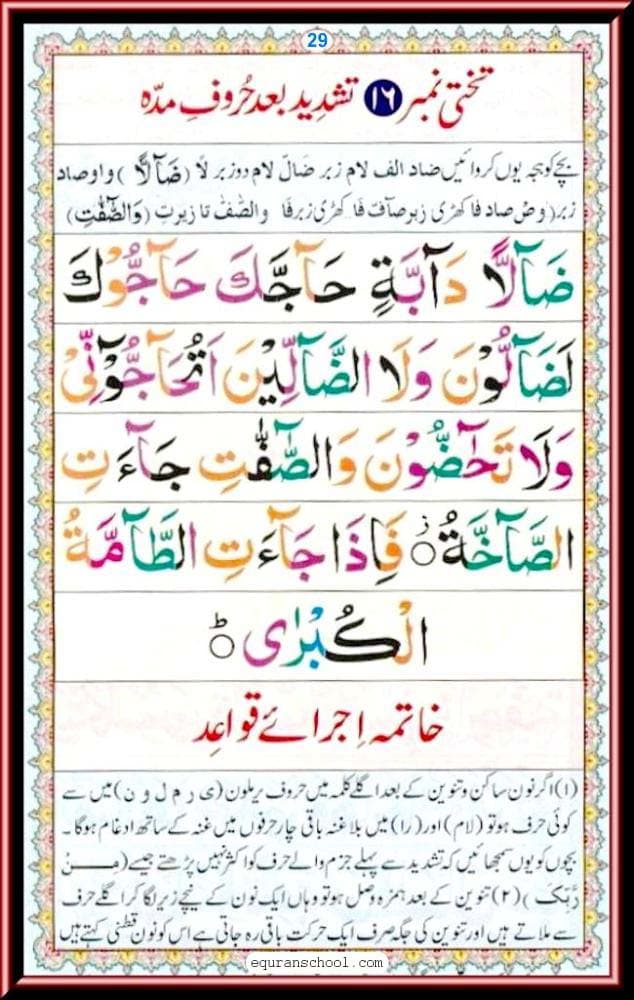 29
تختی نمبر ۱۶ تشدید بعد حُروفِ مدّہ
بچے کو ہجہ یوں کروائیں ضاد الف لام زبر ضَالّ لام دو زبر لًا (ضَآلًّا) واو صاد
زبر (وصْ صاد فا کھڑی زبر صآفّ فَا کھڑی زبر فَا والصّٰفّٰ تا زیر تِ (وَالصّٰٓفّٰتِ)
ضَآلًّا دَآبَّةٍ حَآجَّكَ حَآجُّوْكَ
لَضَآلُّوْنَ وَلَا الضَّآلِّيْنَ اَتُحَآجُّوْٓنِّيْ
وَلَا تَحٰٓضُّوْنَ وَالصّٰٓفّٰتِ جَآءَتِ
الصَّآخَّةُ ۝ز فَاِذَا جَآءَتِ الطَّآمَّةُ
الْكُبْرٰى ۝ط
خاتمہ اِجرائے قواعِد
(۱) اگر نون ساکن و تنوین کے بعد اگلے کلمہ میں حروف یرملون (ی ر م ل و ن) میں سے
کوئی حرف ہو تو (لام) اور (را) میں بلا غنہ باقی چار حرفوں میں غنہ کے ساتھ ادغام ہوگا۔
بچوں کو یوں سمجھائیں کہ تشدید سے پہلے جزم والے حرف کو اکثر نہیں پڑھتے جیسے (مِنْ
رَّبِّكَ) (۲) تنوین کے بعد ہمزہ وصل ہو تو وہاں ایک نون کے نیچے زیر لگا کر اگلے حرف
سے ملاتے ہیں اور تنوین کی جگہ صرف ایک حرکت باقی رہ جاتی ہے اس کو نون قطنی کہتے ہیں
equranschool.com